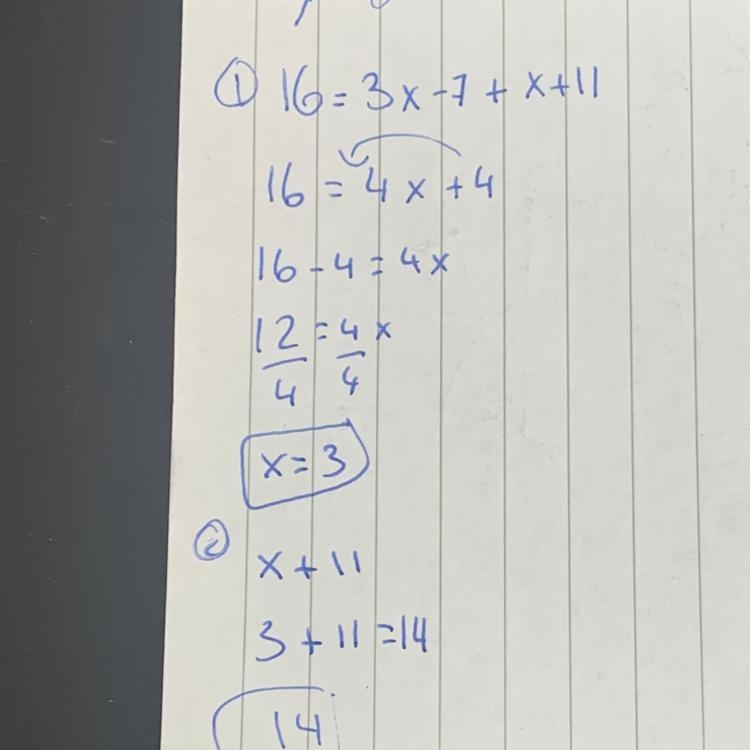 ① 16 = 3x - 7 + x + 11
16 = 4x + 4
16 - 4 = 4x
12/4 = 4/4 x
x = 3
② x + 11
3 + 11 = 14
14